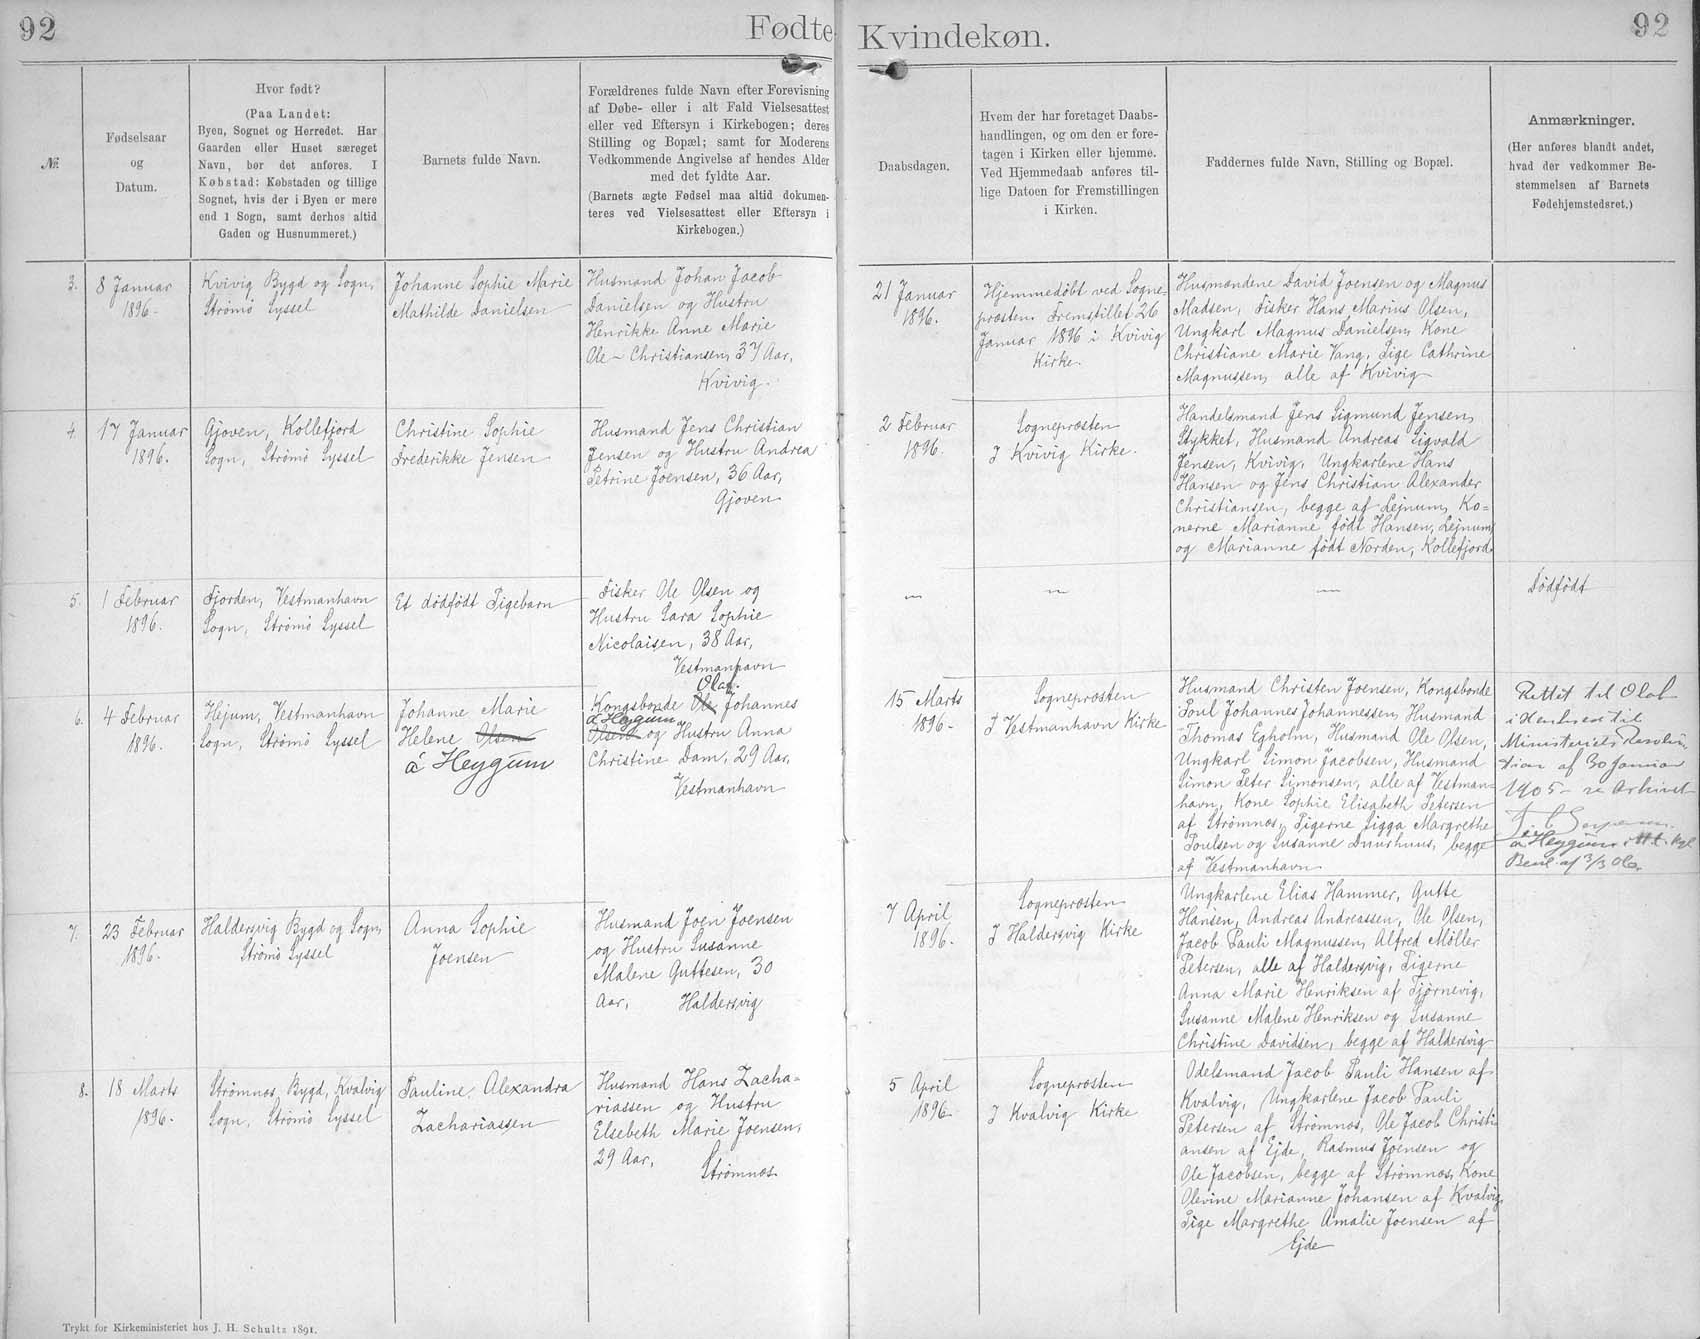 92
Fødte
Kvindekøn.
92
№
Fødselsaar
og
Datum.
Hvor født?
(Paa Landet:
Byen, Sognet og Herredet. Har
Gaarden eller Huset særeget
Navn, bør det anføres. I
Købstad: Købstaden og tillige
Sognet, hvis der i Byen er mere
end 1 Sogn, samt derhos altid
Gaden og Husnummeret.)
Barnets fulde Navn.
Forældrenes fulde Navn efter Forevisning
af Døbe- eller i alt Fald Vielsesattest
eller ved Eftersyn i Kirkebogen; deres
Stilling og Bopæl; samt for Moderens
Vedkommende Angivelse af hendes Alder
med det fyldte Aar.
(Barnets ægte Fødsel maa altid dokumen-
teres ved Vielsesattest eller Eftersyn i
Kirkebogen.)
Daabsdagen.
Hvem der har foretaget Daabs-
handlingen, og om den er fore-
tagen i Kirken eller hjemme.
Ved Hjemmedaab anføres til-
lige Datoen for Fremstillingen
i Kirken.
Faddernes fulde Navn, Stilling og Bopæl.
Anmærkninger.
(Her anføres blandt andet,
hvad der vedkommer Be-
stemmelsen af Barnets
Fødehjemstedsret.)
3.
8 Januar
1896.
Kvivig Bygd og Sogn,
Strømø Syssel
Johanne Sophie Marie
Mathilde Danielsen
Husmand Johan Jacob
Danielsen og Hustru
Henrikke Anne Marie
Ole - Christiansen, 37 Aar,
Kvivig.
21 Januar
1896.
Hjemmedøbt ved Sogne=
præsten. Fremstillet 26
Januar 1896 i Kvivig
Kirke.
Husmændene David Joensen og Magnus
Madsen, Fisker Hans Marius Olsen,
Ungkarl Magnus Danielsen, Kone
Christiane Marie Vang, Pige Cathrine
Magnussen, alle af Kvivig
4.
17 Januar
1896.
Gjoven, Kollefjord
Sogn, Strømø Syssel
Christine Sophie
Frederikke Jensen
Husmand Jens Christian
Jensen og Hustru Andrea
Petrine Joensen, 36 Aar,
Gjoven
2 Februar
1896.
Sognepræsten
I Kvivig Kirke.
Handelsmand Jens Sigmund Jensen,
Stykket, Husmand Andreas Sigvald
Jensen, Kvivig, Ungkarlene Hans
Hansen og Jens Christian Alexander
Christiansen, begge af Lejnum, Ko=
nerne Marianne født Hansen, Lejnum,
og Marianne født Norden, Kollefjord
5.
1 Februar
1896.
Fjorden, Vestmanhavn
Sogn, Strømø Syssel
Et dødfødt Pigebarn
Fisker Ole Olsen og
Hustru Sara Sophie
Nicolaisen, 38 Aar,
Vestmanhavn
Dødfødt
6.
4 Februar
1896.
Hejum, Vestmanhavn
Sogn, Strømø Syssel
Johanne Marie
Helene Olsen
á Heygum
Olaf.
Kongsbonde Ole Johannes
á Heygum
Olsen og Hustru Anna
Christine Dam, 29 Aar,
Vestmanhavn
15 Marts
1896.
Sognepræsten
I Vestmanhavn Kirke
Husmand Christen Joensen, Kongsbonde
Poul Johannes Johannessen, Husmand
Thomas Egholm, Husmand Ole Olsen,
Ungkarl Simon Jacobsen, Husmand
Simon Peter Simonsen, alle af Vestman=
havn, Kone Sophie Elisabeth Petersen
af Strømnæs, Pigerne Sigga Margrethe
Poulsen og Susanne Duurhuus, begge
af Vestmanhavn
Rettet til Olaf
i Henhold til
Ministeriets Resolu
tion af 30 Januar
1905
á Heygum
7.
23 Februar
1896.
Haldersvig Bygd og Sogn,
Strømø Syssel
Anna Sophie
Joensen
Husmand Joen Joensen
og Hustru Susanne
Malene Guttesen, 30
Aar, Haldersvig
7 April
1896.
Sognepræsten
I Haldersvig Kirke
Ungkarlene Elias Hammer, Gutte
Hansen, Andreas Andreassen, Ole Olsen,
Jacob Pauli Magnussen, Alfred Møller
Petersen, alle af Haldersvig, Pigerne
Anna Marie Henriksen af Tjørnevig,
Susanne Malene Henriksen og Susanne
Christine Davidsen, begge af Haldersvig
8.
18 Marts
1896.
Strømnæs Bygd, Kvalvig
Sogn, Strømø Syssel
Pauline Alexandra
Zachariassen
Husmand Hans Zacha=
riassen og Hustru
Elsebeth Marie Joensen,
29 Aar,
Strømnæs
5 April
1896.
Sognepræsten
I Kvalvig Kirke
Odelsmand Jacob Pauli Hansen af
Kvalvig, Ungkarlene Jacob Pauli
Petersen af Strømnæs, Ole Jacob Christi=
ansen af Ejde, Rasmus Joensen og
Ole Jacobsen, begge af Strømnæs, Kone
Olevine Marianne Johansen af Kvalvig,
Pige Margrethe Amalie Joensen af
Ejde
Trykt for Kirkeministeriet hos J. H. Schultz 1891.